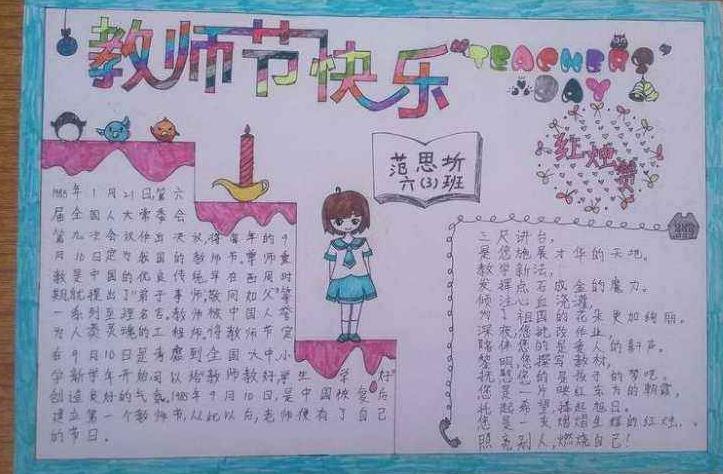 教师节快乐
"TEACHERS'
DAY
范思圻
六(3)班
红烛赞
1985年1月21日,第六
届全国人大常委会
第九次会议作出决议,将每年的9
月10日定为我国的教师节。尊师重
教是中国的优良传统,早在西周时
期就提出了"弟子事师,敬同如父"等
一系列至理名言,教师被中国人誉
为人类灵魂的工程师。将教师节定
在9月10日是考虑到全国大中小
学新学年开始,可以给教师教好,学生学好"
创造良好的气氛。1985年9月10日,是中国恢复后
建立第一个教师节,从此以后,老师便有了自己
的节日。
三尺讲台,
是您施展才华的天地。
教学新法,
发挥点石成金的魔力。
倾注心血浇灌,
为了祖国的花朵更加绚丽。
深夜,您批改作业,
陪伴您的是爱人的鼾声。
黎明,您撰写教材,
抚慰您的是孩子的梦呓。
您是一片映红东方的朝霞,
托起希望,捧起旭日。
您是一支熠熠生辉的红烛、
照亮别人,燃烧自己!